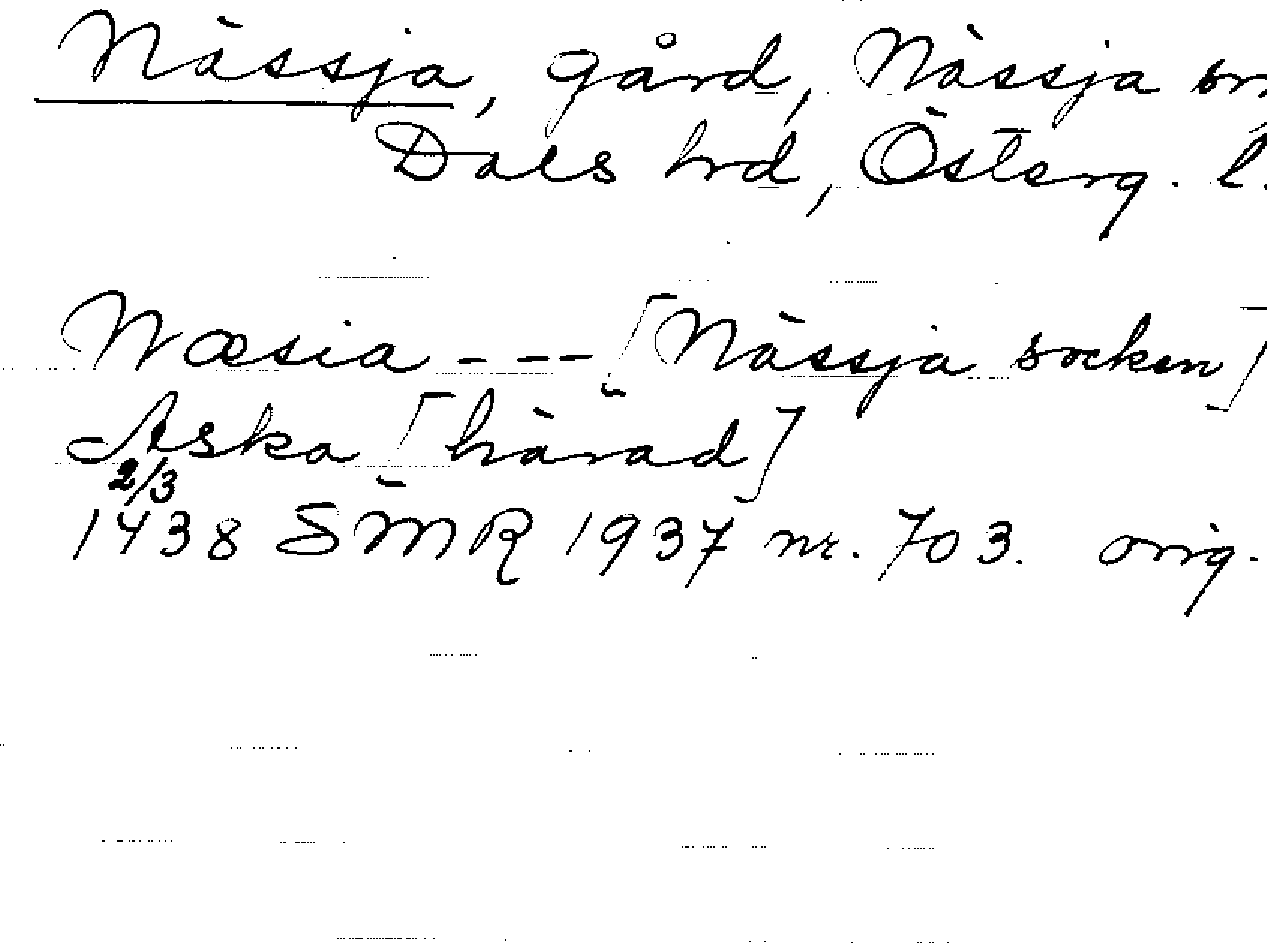 Nässja, gård, Nässja sn
Dals hrd, Österg. l.
Næsia --- [Nässja socken]
Aska [härad]
2/3
1438 SMR 1937 nr. 703. orig.